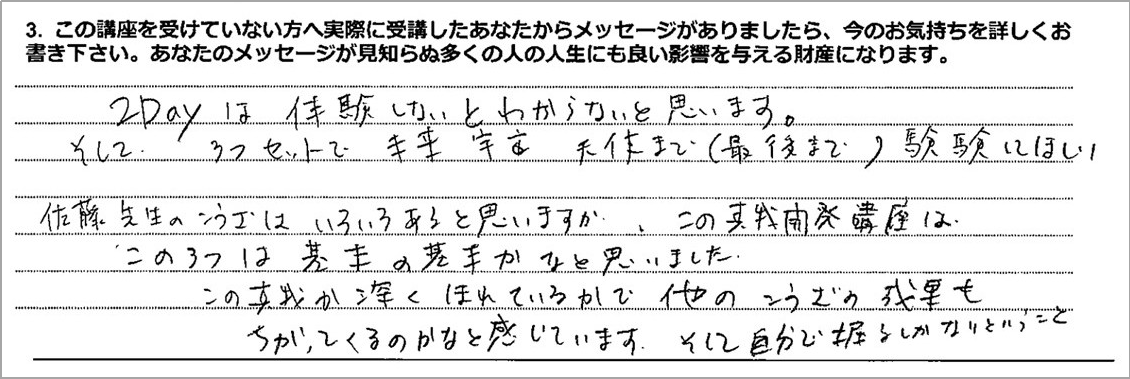 3. この講座を受けていない方へ実際に受講したあなたからメッセージがありましたら、今のお気持ちを詳しくお
書き下さい。あなたのメッセージが見知らぬ多くの人の人生にも良い影響を与える財産になります。
2Dayは 体験しないとわからないと思います。
そして 3つセットで 未来 宇宙 天体まで(最後まで) 験験してほしい
佐藤先生のこうざは いろいろあると思いますが、この真我開発講座は
この3つは 基本の基本かなと思いました
この真我が深くほれているかで 他のこうざの成果も
ちがってくるのかなと感じています そして自分で掘るしかないということ